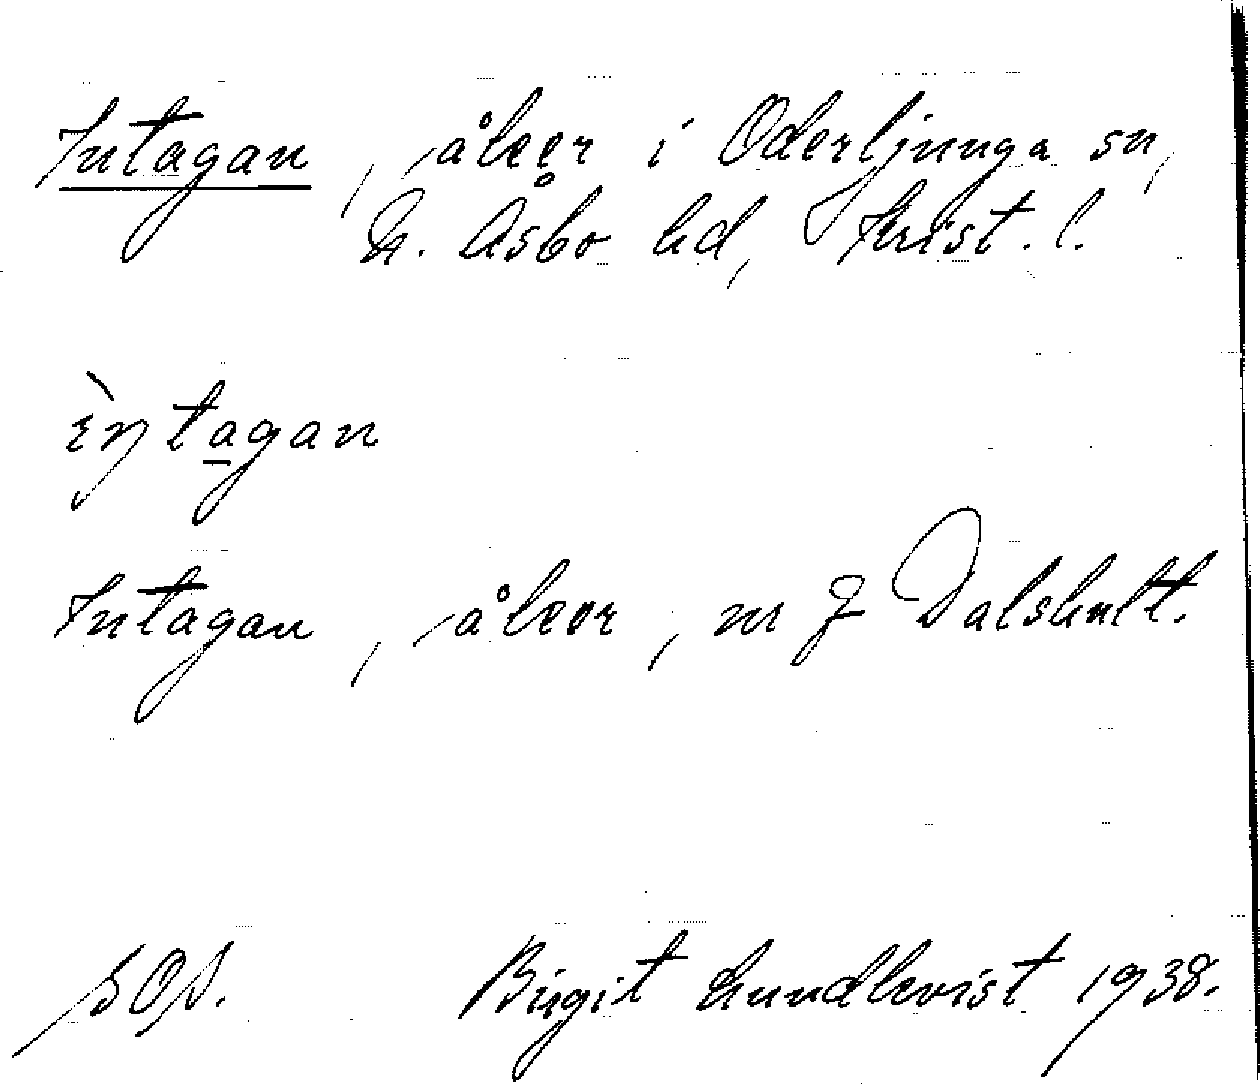 Intagan, åker i Oderljunga sn,
N. Åsbo hd, Krist. l.
ὲŋtagan
Intagan, åker, nr 7 Dalshult.
SOS. Birgit Lundkvist 1938.